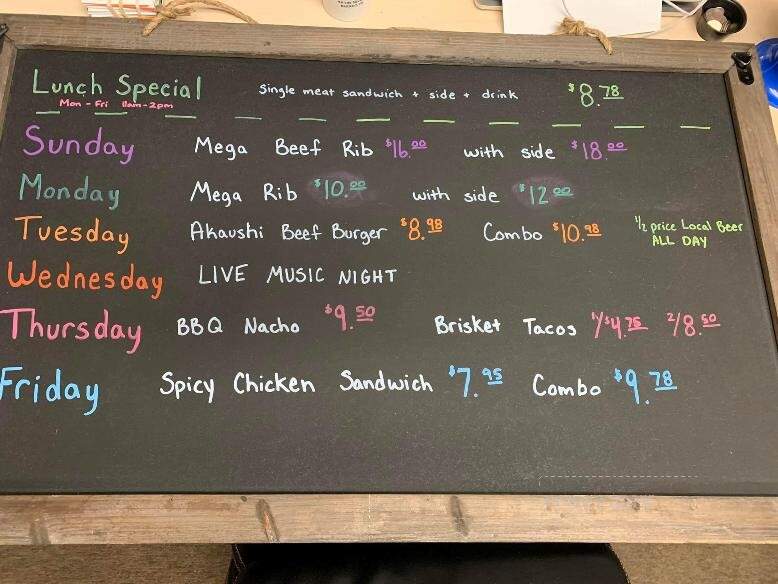 Lunch Special Single meat sandwich + side + drink $8.78
Mon - Fri 11am - 2pm
Sunday Mega Beef Rib $16.00 with side $18.00
Monday Mega Rib $10.00 with side $12.00
Tuesday Akaushi Beef Burger $8.98 Combo $10.98 1/2 price Local Beer
ALL DAY
Wednesday LIVE MUSIC NIGHT
Thursday BBQ Nacho $9.50 Brisket Tacos 1/$4.75 2/8.50
Friday Spicy Chicken Sandwich $7.95 Combo $9.78